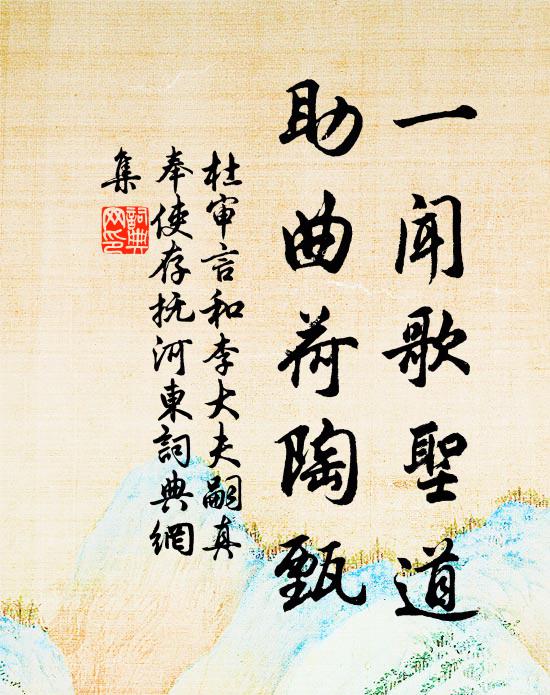 一闻歌聖道
助曲荷陶甄
杜审言和李大夫嗣真
奉使存抚河東詞典網
集
詞典
网印